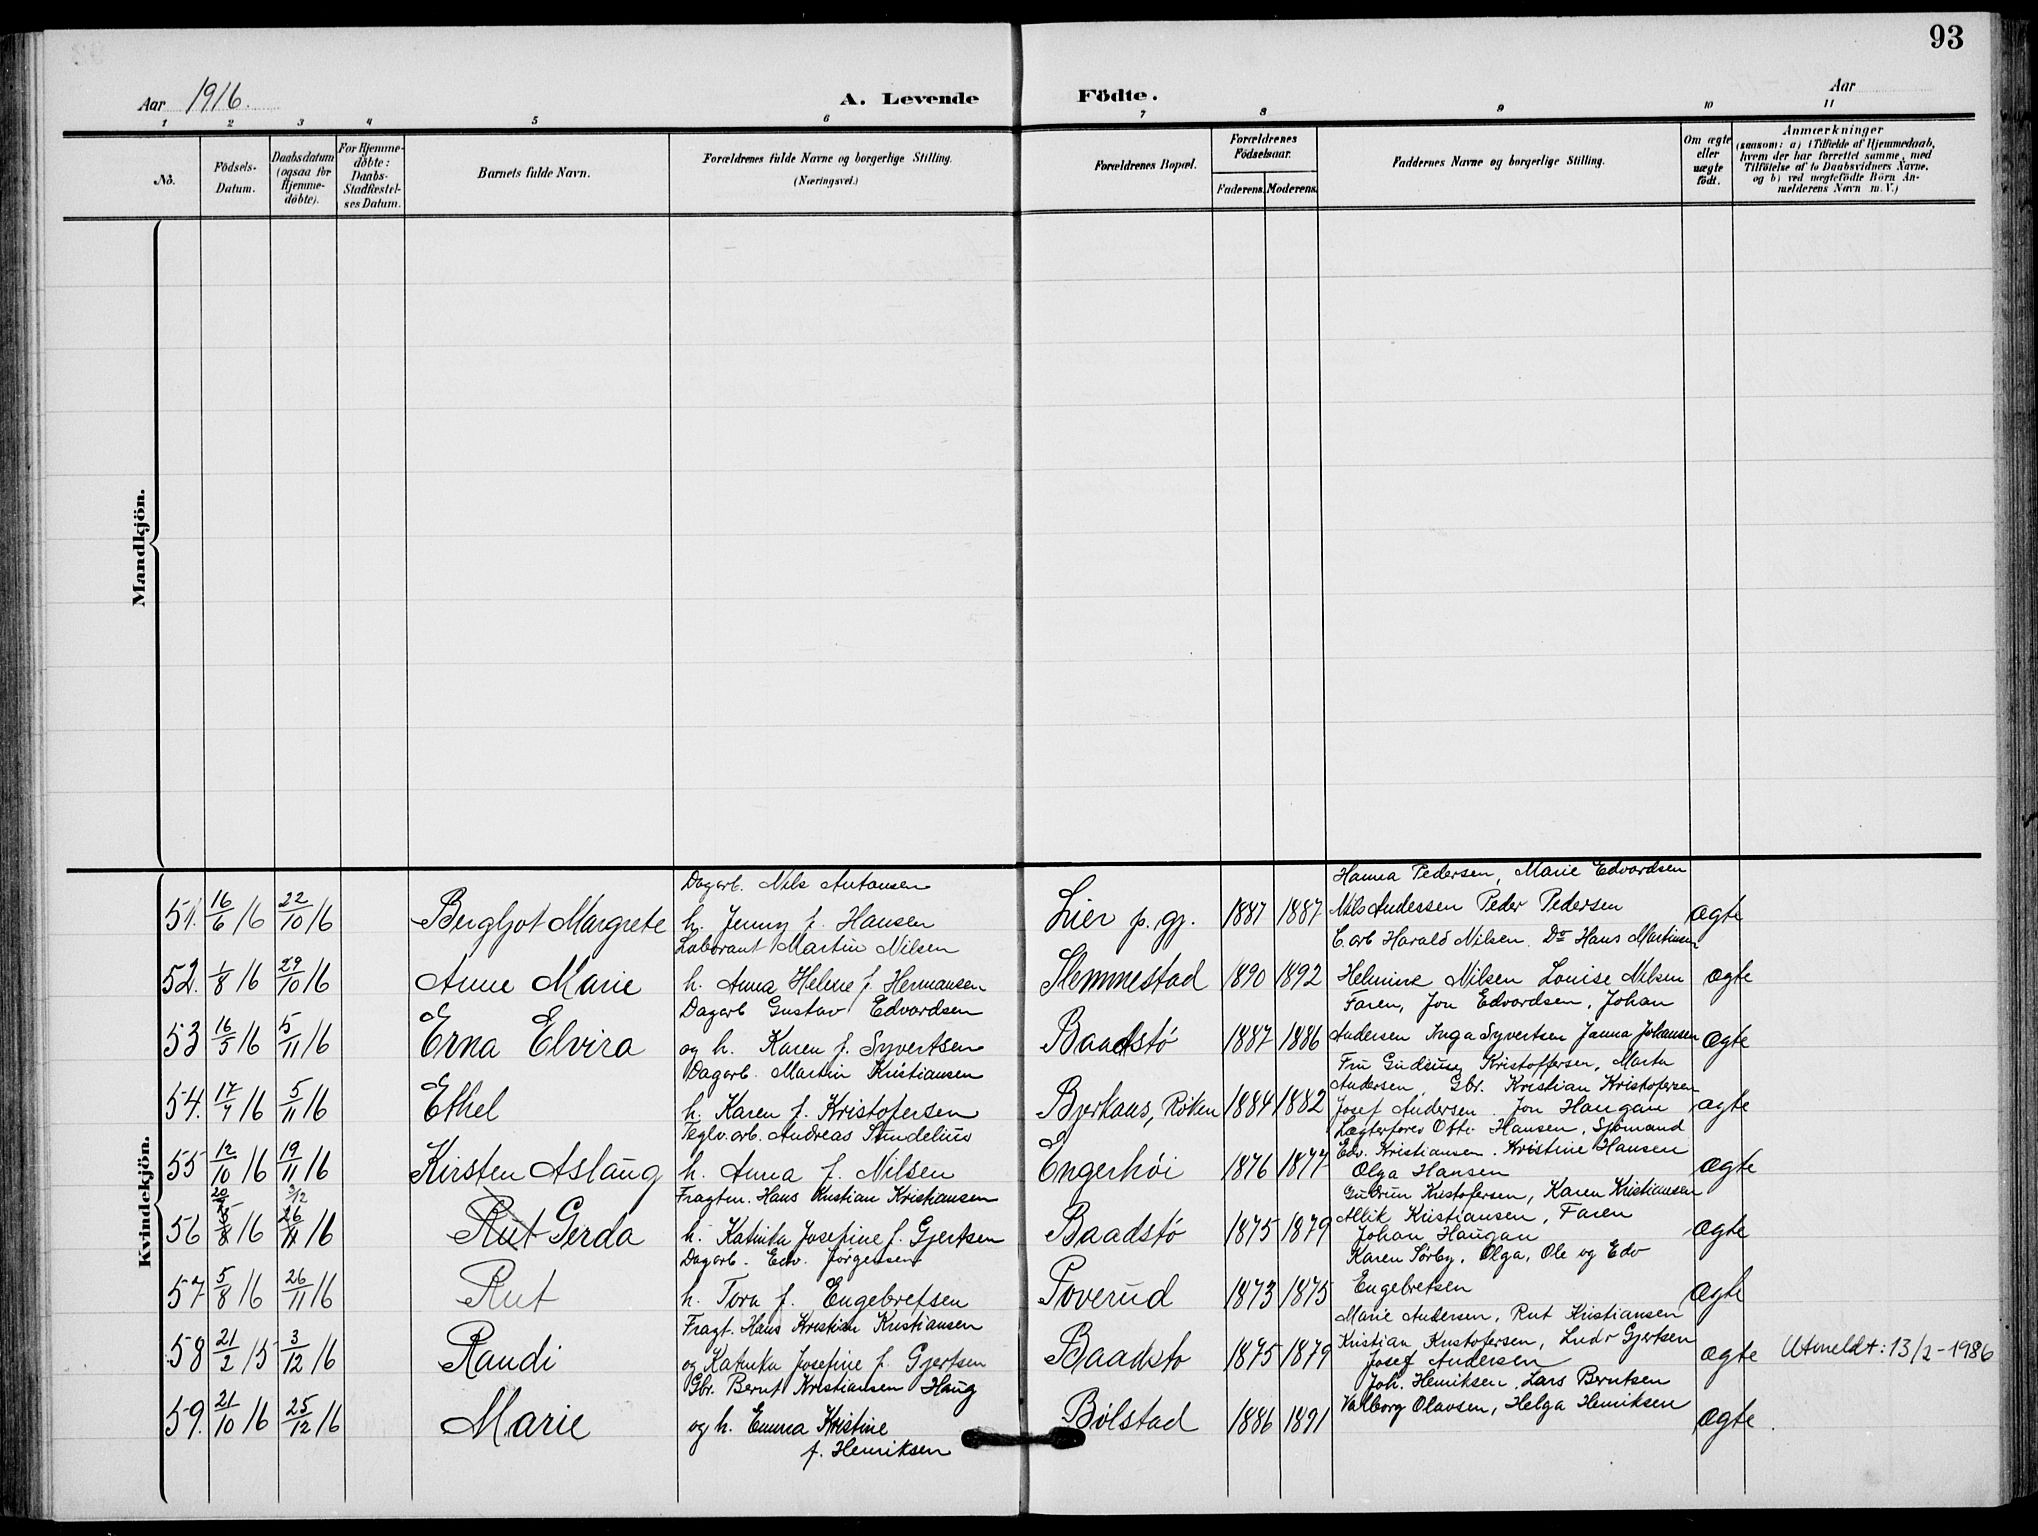 93
Aar 1916.
A. Levende Födte.
Aar
1 2 3 4 5 6 7 8 9 10 11
No.
Födsels-
Datum.
Daabsdatum
(ogsaa for
Hjemme-
döbte).
For Hjemme-
döbte:
Daabs-
Stadfæstel-
ses Datum.
Barnets fulde Navn.
Forældrenes fulde Navne og borgerlige Stilling.
(Næringsvei.)
Forældrenes Bopæl.
Forældrenes
Födselsaar.
Faderens. Moderens.
Faddernes Navne og borgerlige Stilling.
Om ægte
eller
uægte
födt.
Anmærkninger
(saasom: a) i Tilfælde af Hjemmedaab,
hvem der har forrettet samme, med
Tilföielse af to Daabsvidners Navne,
og b) ved uægtefödte Börn An-
melderens Navn m. V.)
Mandkjön.
Kvindekjön.
Dagarb. Nils Antonsen
Hanna Pedersen, Marie Edvardsen
51. 16/6 16 22/10 16 Bergljot Margrete h. Jenny f. Hansen Lier p. gj. 1887 1887 Nils Andessen Peder Pedersen ægte
Laborant Martin Nilsen
C. arb Harald Nilsen. Do Hans Martinsen
52. 1/8 16 29/10 16 Anne Marie h. Anna Helene f. Hermansen Slemmestad 1890 1892 Helmine Nilsen Louise Nilsen ægte
Dagarb Gustav Edvardsen
Faren, Jon Edvardsen, Johan
53 16/5 16 5/11 16 Erna Elvira og h. Karen f. Syvertsen Baadstø 1887 1886 Andersen Inga Syvertsen Janna Johansen ægte
Dagarb. Martin Kristiansen
Fru Kristoffersen, Marta
Andersen, Gbr. Kristian Kristofersen
54. 17/7 16 5/11 16 Ethel h. Karen f. Kristofersen Bjerkaas, Röken 1884 1882 Josef Andersen. Jon Haugan ægte
Teglv. arb. Andreas Sundelius
Lægterforv Otto Hansen, Sjömand
Edv. Kristiansen. Kristine Hansen
55 12/10 16 19/11 16 Kirsten Aslaug h. Anna f. Nilsen Engerhöi 1876 1877 Olga Hansen ægte
Fragtm. Hans Kristian Kristiansen
Gudrun Kristofersen, Karen Kristiansen
3/12
56 16 26/11 16 Rut Gerda h. Katinka Josefine f. Gjertsen Baadstø 1875 1879 Kristiansen, Faren ægte
Johan Haugan
Dagarb. Edv. Jörgensen
Karen Sörby, Olga, Ole og Edv
57 5/8 16 26/11 16 Rut h. Tora f. Engebretsen Poverud 1873 1875 Engebretsen ægte
Fragt. Hans Kristian Kristiansen
Marie Andersen, Rut Kristiansen
58 21/2 15 3/12 16 Randi og Katinka Josefine f. Gjertsen Baadstø 1875 1879 Kristian Kristofersen, Ludv Gjertsen ægte Utmeldt: 13/2-1986
Josef Andersen
Gbr. Bernt Kristiansen Haug
Joh. Henriksen, Lars Berntsen
59. 21/10 16 25/12 16 Marie og h. Emma Kristine Bölstad 1886 1891 Valborg Olavsen, Helga Henriksen ægte
f. Henriksen